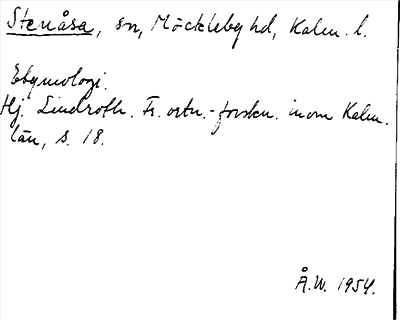 Stenåsa, sn, Möckleby hd, Kalm. l.
Etymologi.
Hj. Lindroth. Fr. ortn.-forskn. inom Kalm.
län, s. 18.
Å.W. 1954.